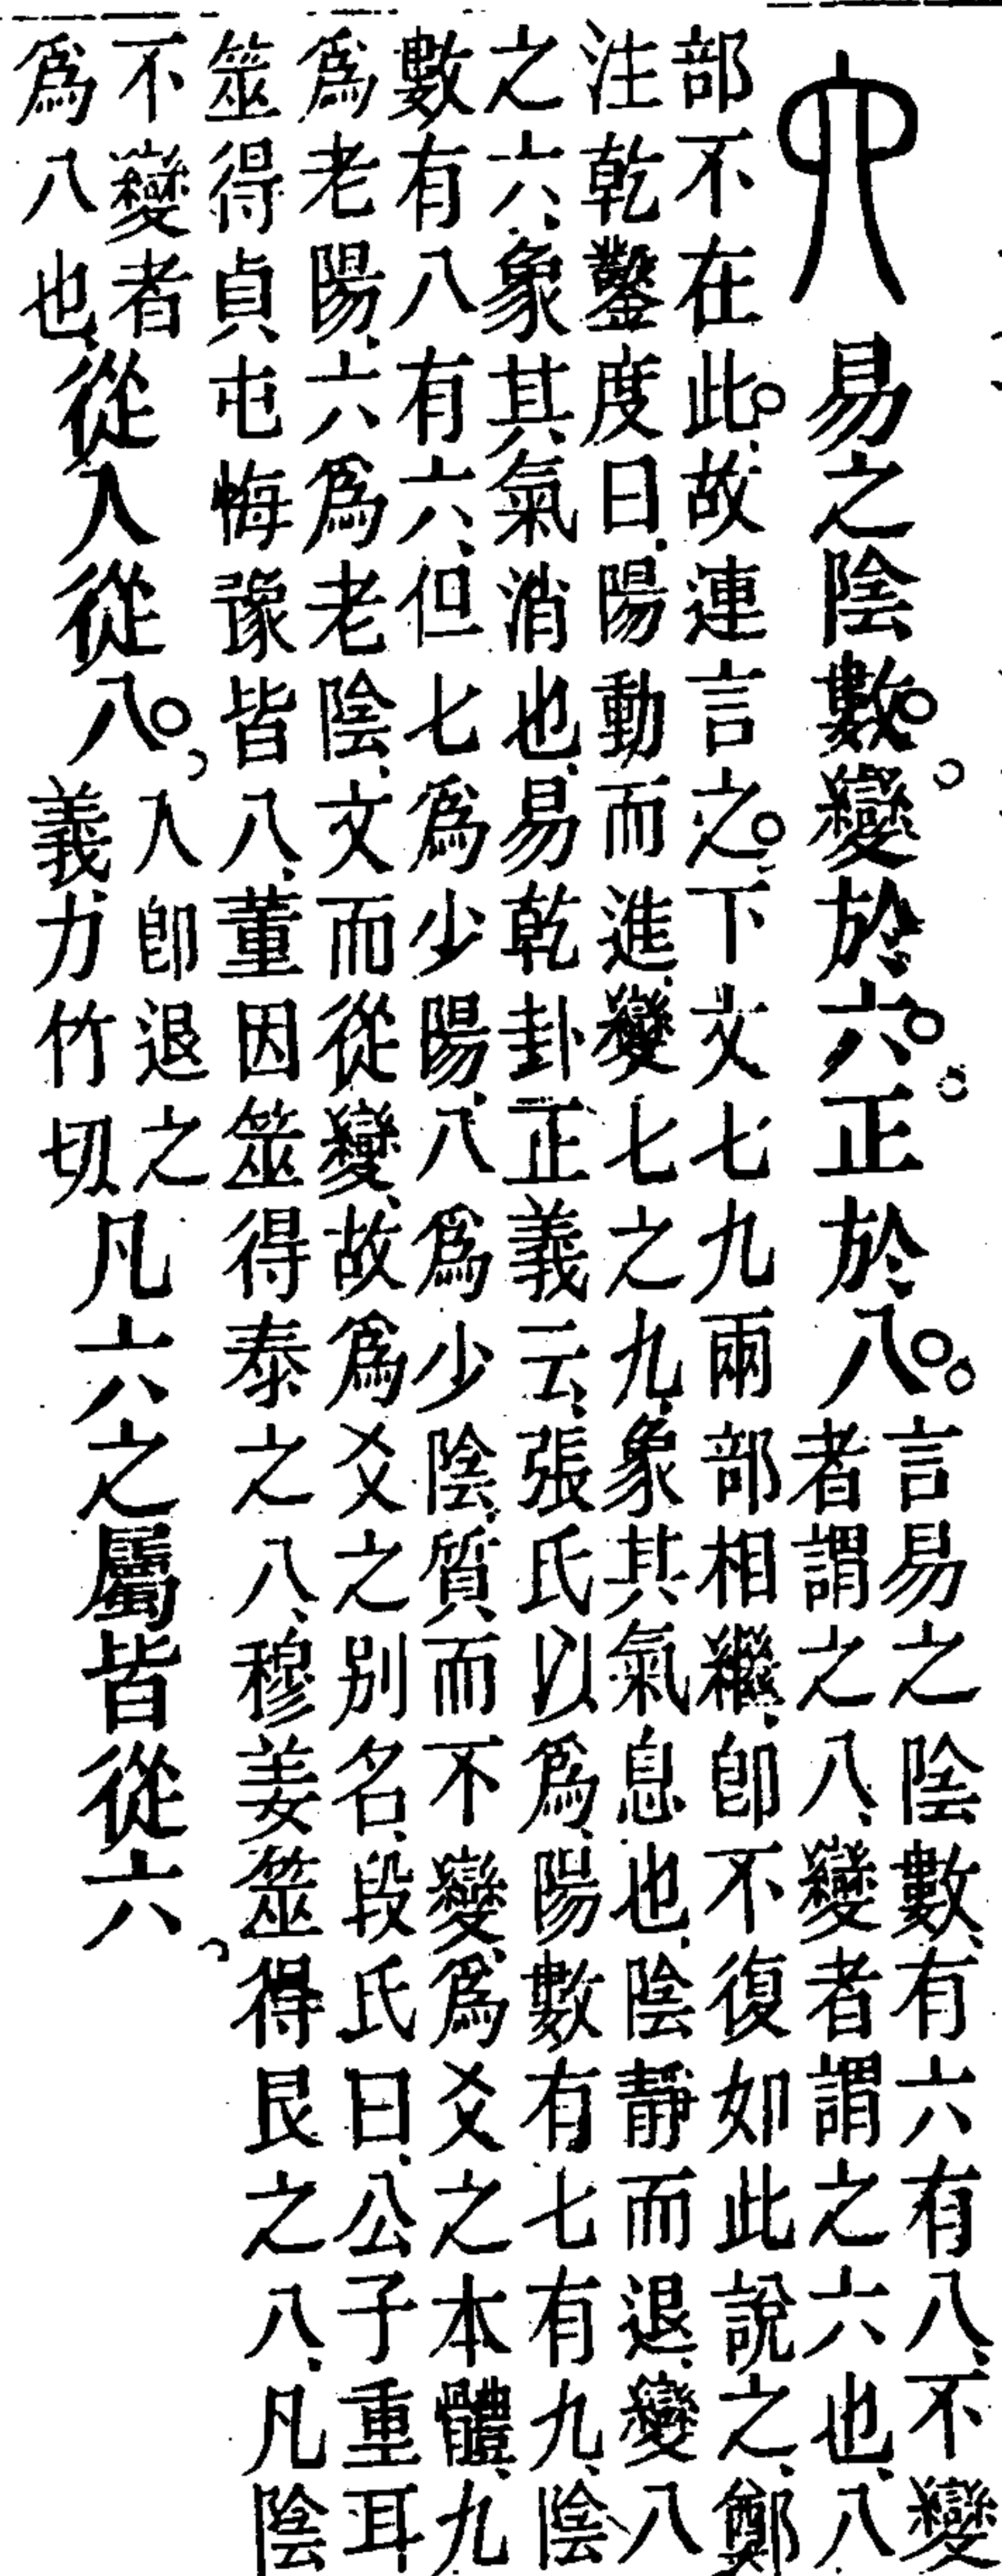 六 易之陰數。變於六。正於八。
言易之陰數、有六有八、不變
者謂之八、變者謂之六也、八
部不在此。故連言之。下文七九兩部相繼、卽不復如此說之、鄭
注乾鑿度曰、陽動而進、變七之九、象其氣息也、陰靜而退、變八
之六、象其氣消也、易乾卦正義云、張氏以爲、陽數有七有九、陰
數有八有六、但七爲少陽、八爲少陰、質而不變、爲爻之本體、九
爲老陽、六爲老陰、文而從變、故爲爻之別名、段氏曰、公子重耳
筮得貞屯悔豫皆八、董因筮得泰之八、穆姜筮得艮之八、凡陰
不變者
爲八也、
從入從八。
入卽退之
義、力竹切
凡六之屬皆從六。